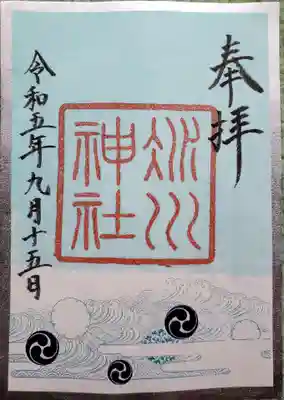 奉拝
冰川
神社
令和五年九月十五日